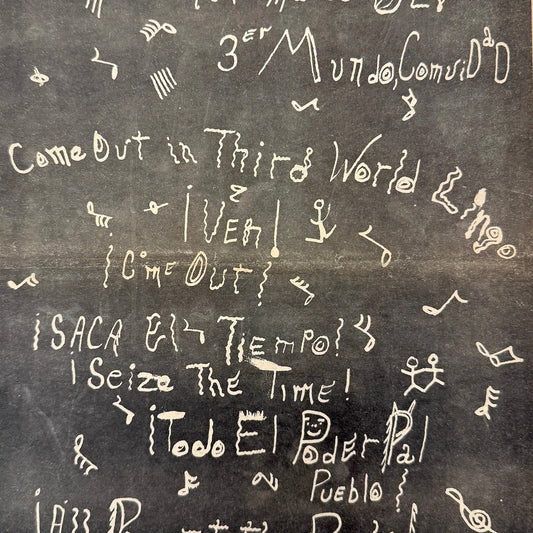 3er Mundo, ComuiDaD
Come Out in Third World Lingo
¡VEN!
¡Come Out!
¡SACA El Tiempo!
¡Seize The Time!
¡Todo El Poder Pal
Pueblo!